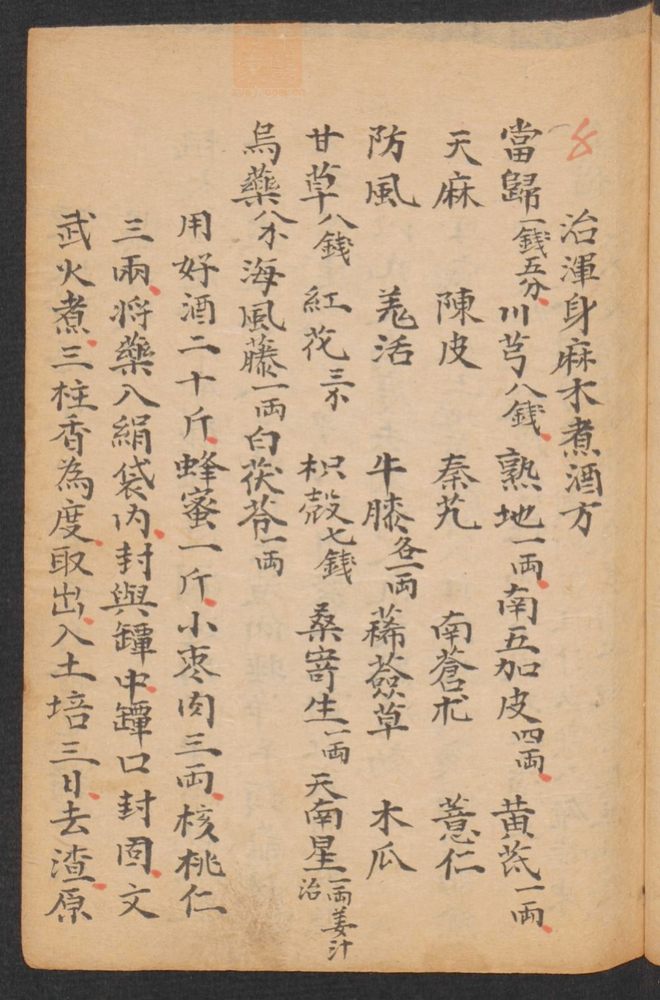 8
治渾身麻木煮酒方
當歸一錢五分川芎八錢熟地一兩南五加皮四兩黄芪一兩
天麻 陳皮 秦艽 南蒼朮 薏仁
防風 羗活 牛膝各一兩 豨薟草 木瓜
甘草八錢 紅花三木 枳殼七錢 桑寄生一兩 天南星一兩姜汁治
烏藥八木海風藤一兩白茯苓一兩
用好酒二十斤蜂蜜一斤小枣肉三兩核桃仁
三兩将藥入絹袋內封與罈中罈口封固文
武火煮三柱香為度取出入土培三日去渣原